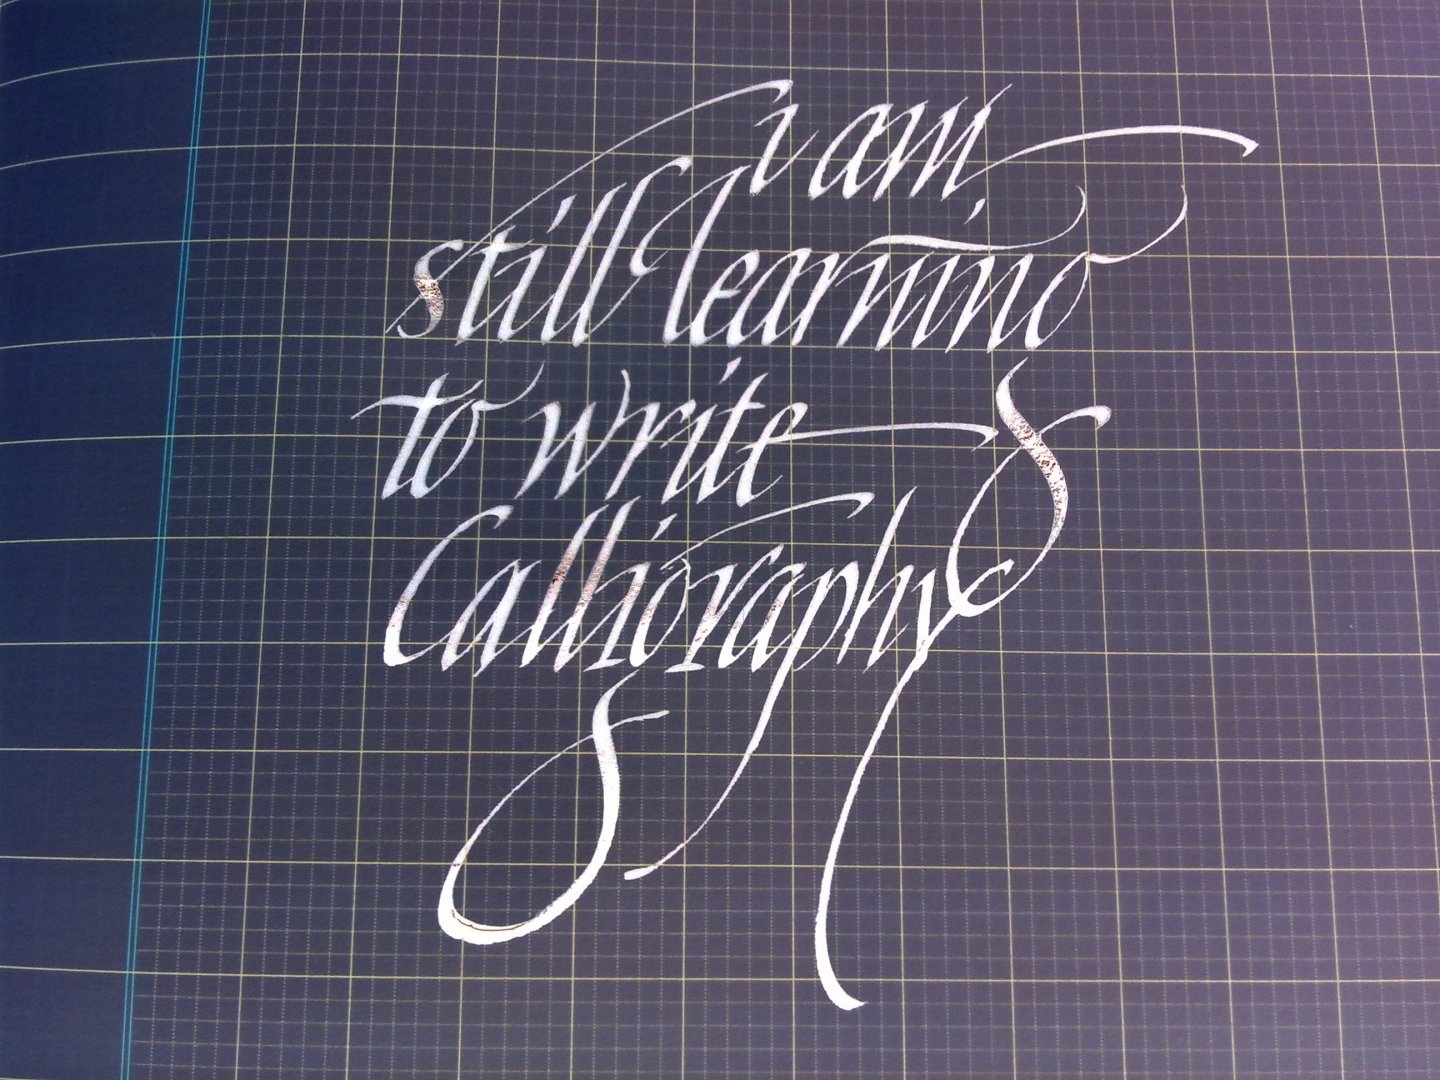 i am
still learning
to write
Calligraphy